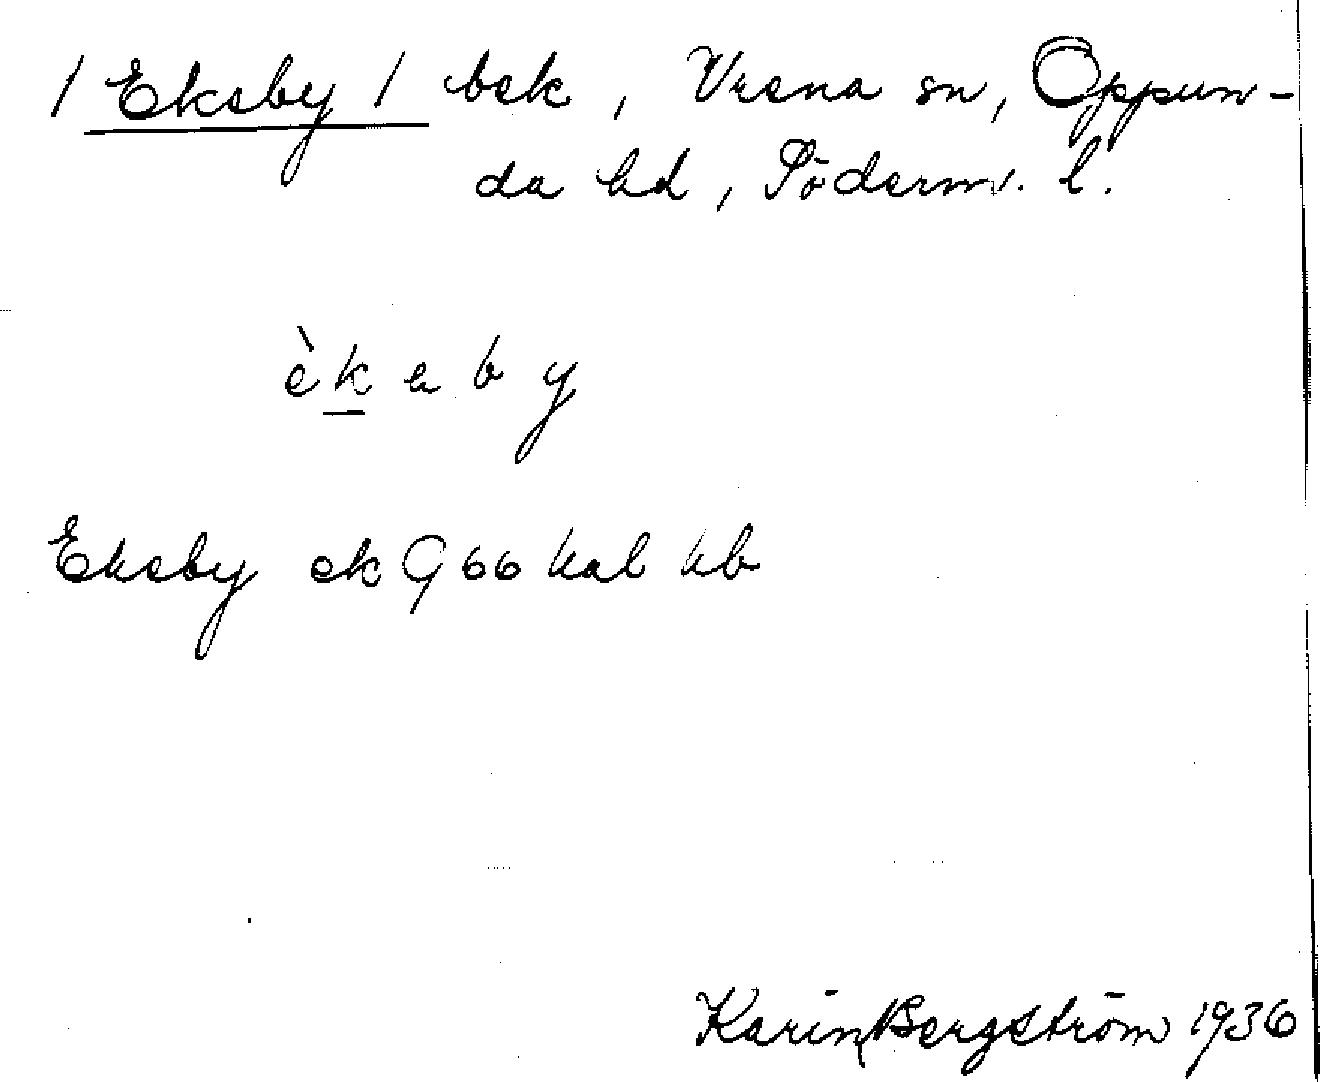 / Ekeby / bsk, Vrena sn, Oppun-
da hd, Söderm. l.
èk e b y
Ekeby ek
Karin Bergström 1936